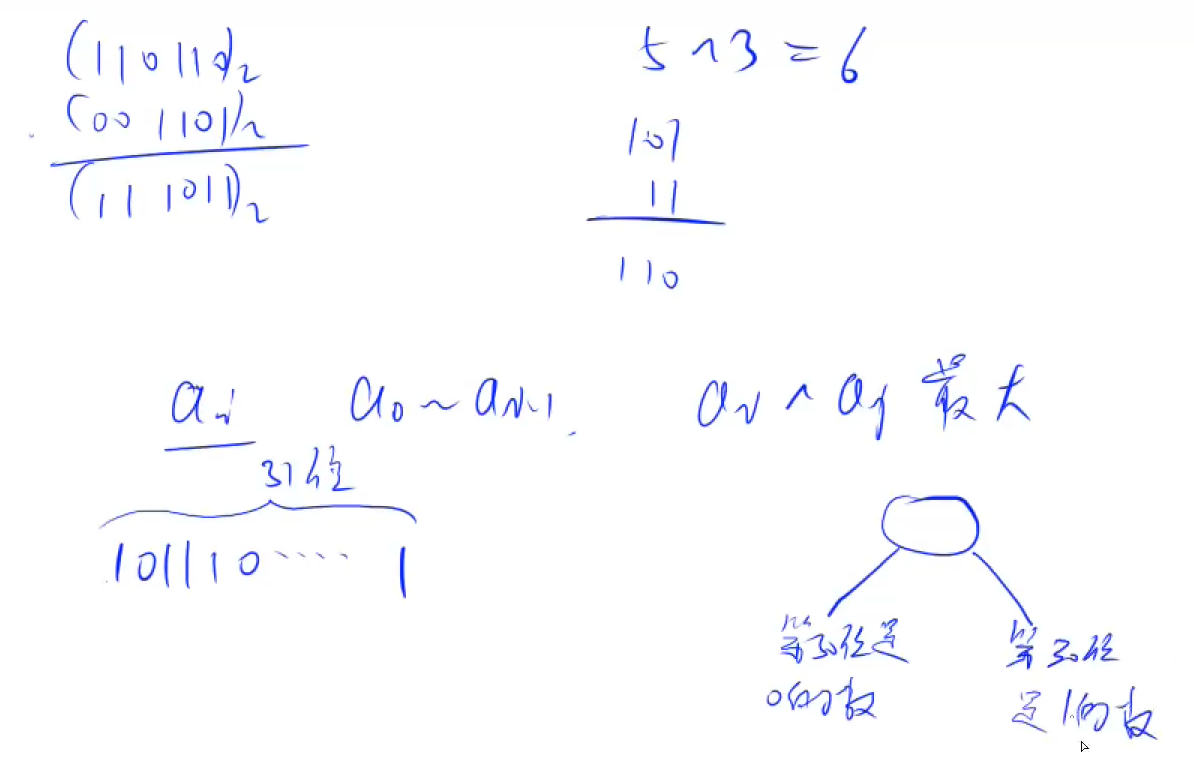 (110110)₂
(001101)₂
(111011)₂
5 ^ 3 = 6
101
11
110
aᵢ a₀ ~ a_{N-1}
aᵢ ^ aⱼ 最大
31位
101110 ···· 1
第30位是
0的数
第30位
是1的数